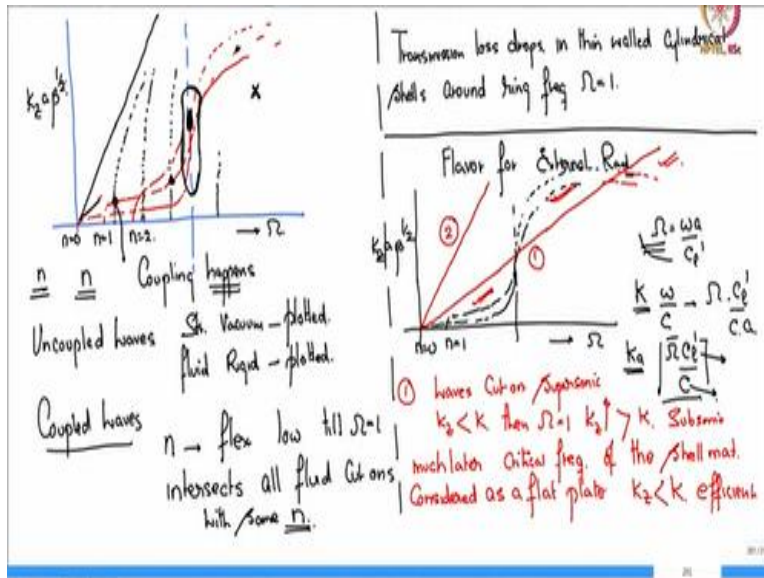 k_z aβ^{1/2}
n=0 n=1 n=2. → Ω
n n Coupling happens
Uncoupled waves Sh. Vacuum – plotted.
fluid Rigid – plotted.
Coupled waves
n → flex low till Ω=1
intersects all fluid Cut ons
with same n.
Transmission loss drops in thin walled Cylindrical
shells around ring freq Ω=1.
Flavor for External Rad
k_z aβ^{1/2}
②
①
n=0 n=1 → Ω
Ω = ωa / C_l'
k ω/C → Ω . C_l' / C.a
ka ΩC_l' / C
① waves Cut on supersonic
k_z < k then Ω=1 k_z↑ > k. Subsonic
much later Critical freq. of the shell mat.
Considered as a flat plate k_z < k. efficient